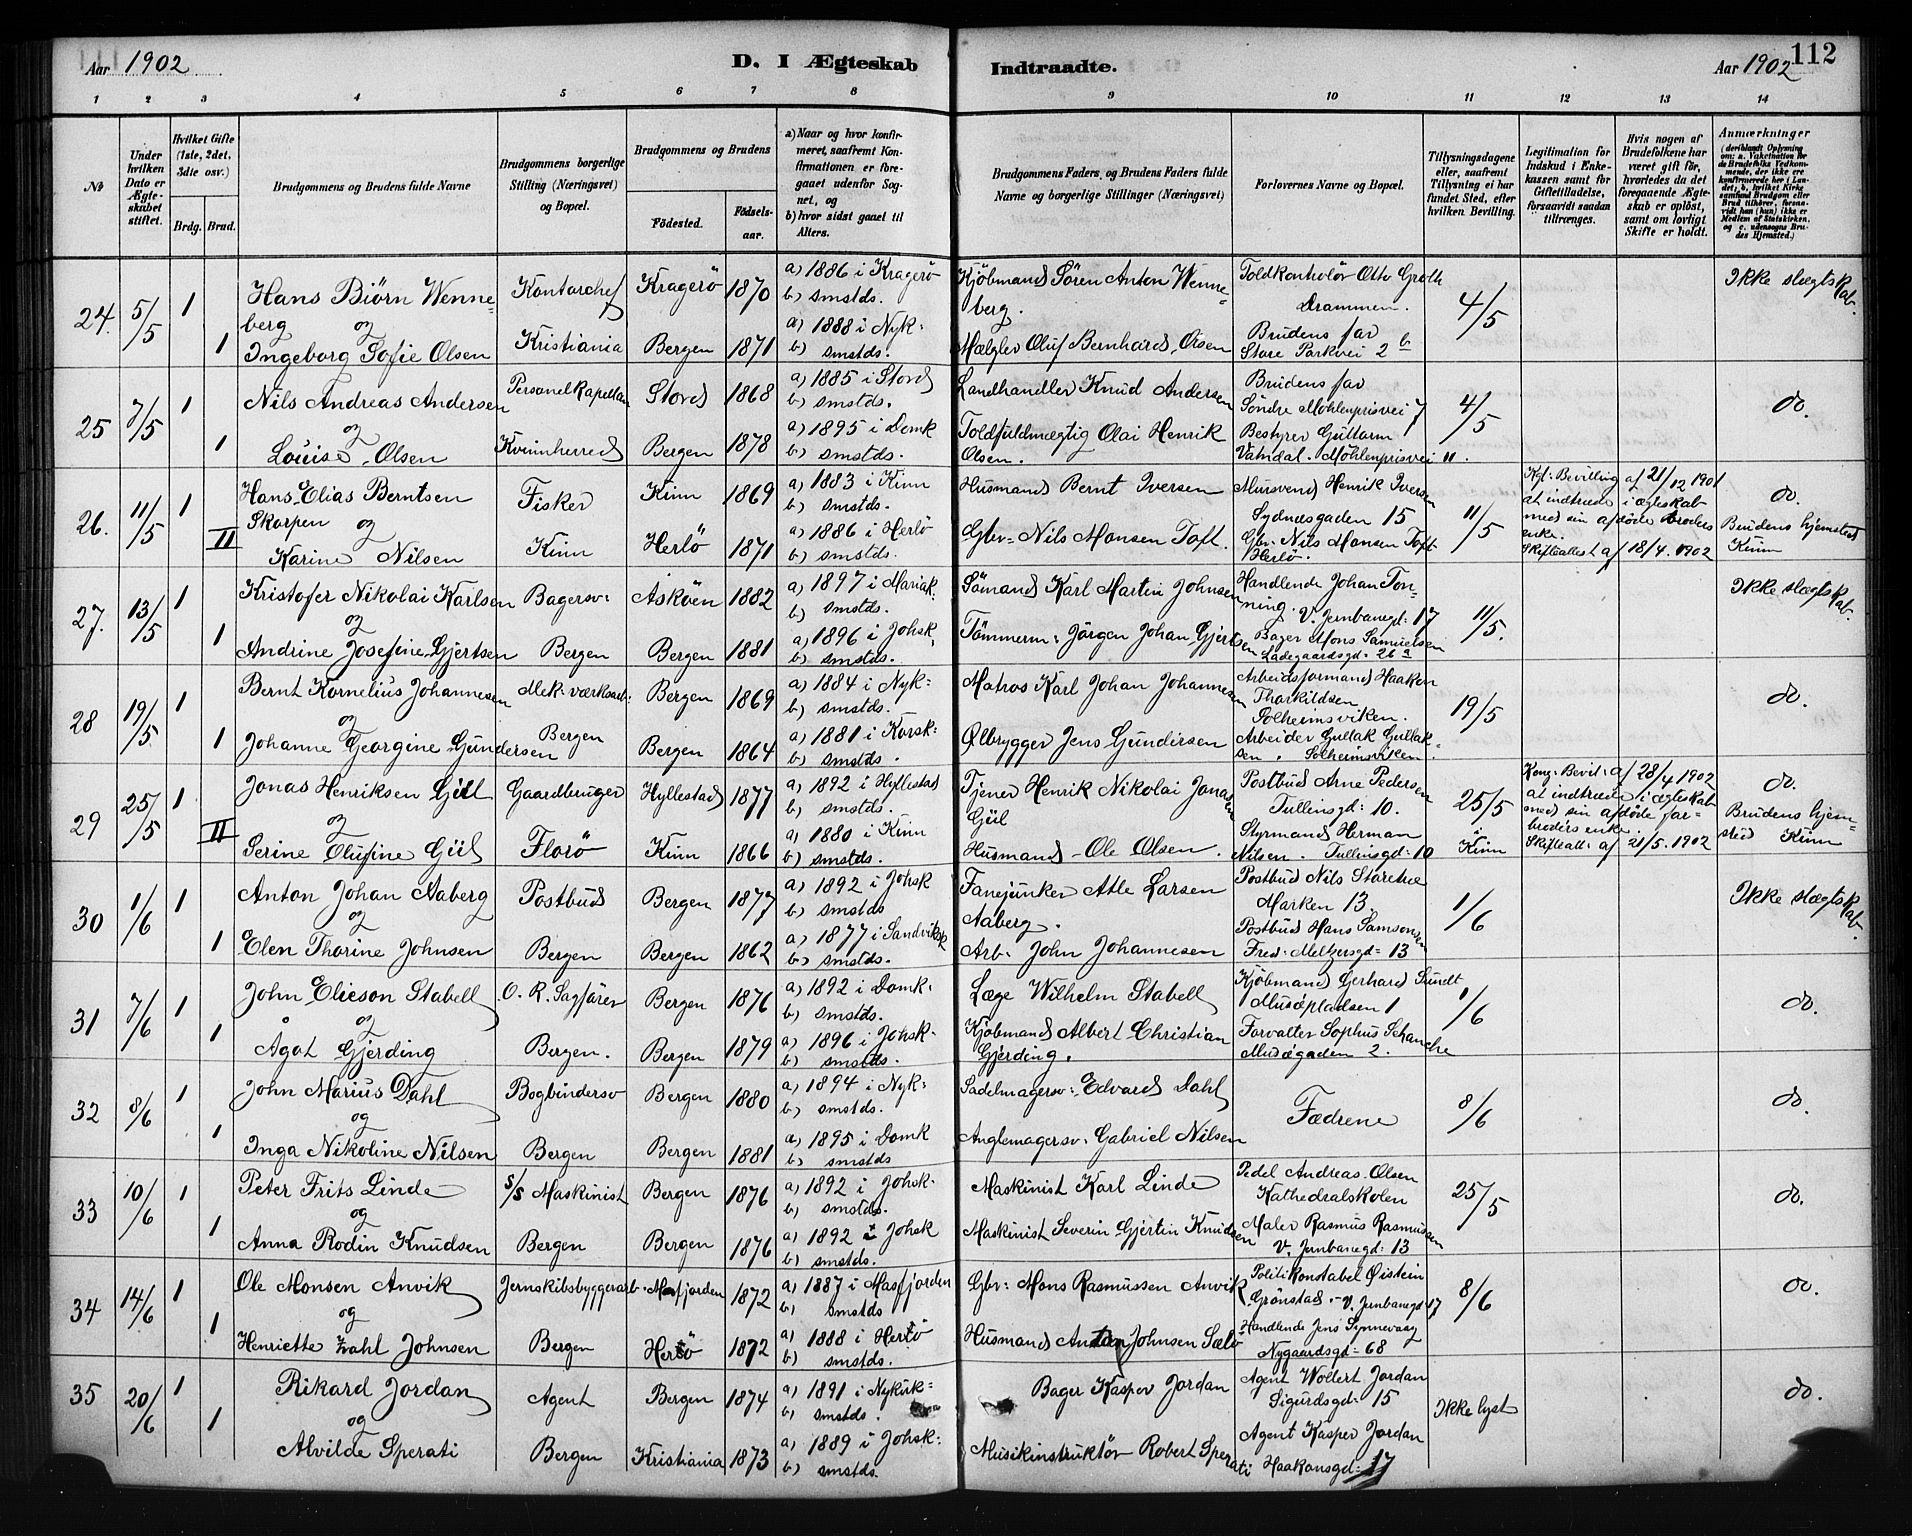 Aar 1902 D. I Ægteskab Indtraadte. Aar 1902 112
1 2 3 4 5 6 7 8 9 10 11 12 13 14
No
Under hvilken Dato er Ægteskabet stiftet.
Hvilket Gifte (1ste, 2det, 3die osv.)
Brdg. Brud.
Brudgommens og Brudens fulde Navne
Brudgommens borgerlige Stilling (Næringsvei) og Bopæl.
Brudgommens og Brudens
Födested. Födsels-aar.
a) Naar og hvor konfirmeret, saafremt Konfirmationen er foregaaet udenfor Sognet, og
b) hvor sidst gaaet til Alters.
Brudgommens Faders, og Brudens Faders fulde Navne og borgerlige Stillinger (Næringsvei)
Forlovernes Navne og Bopæl.
Tillysningsdagene eller, saafremt Tillysning ei har fundet Sted, efter hvilken Bevilling.
Legitimation for Indskud i Enkekassen samt for Giftetilladelse, forsaavidt saadan tiltrænges.
Hvis nogen af Brudefolkene har været gift før, hvorledes da det foregaaende Ægteskab er oplöst, samt om lovligt Skifte er holdt.
Anmærkninger
24. 5/5 1 Hans Biørn Wenneberg Kontorchef Kragerö 1870 a) 1886 i Kragerö b) smstds. Kjöbmand Sören Anton Wenneberg. Toldkontrolör Otto Groth Drammen. 4/5 Ikke slægtskab.
og
1 Ingeborg Sofie Olsen Kristiania Bergen 1871 a) 1888 i Nyk: b) smstds. Mægler Oluf Bernhard Olsen Brudens far Store Parkvei 2 b
25 7/5 1 Nils Andreas Andersen Personel Kapellan Stord 1868 a) 1885 i Stord b) smstds. Landhandler Knud Andersen Brudens far Söndre Möhlenprisvei 7 4/5 do.
og
1 Louise Olsen Kvinnherred Bergen 1878 a) 1895 i Domk b) smstds. Toldfuldmægtig Olai Henrik Olsen. Bestyrer Guttorm Vatndal. Möhlenprisvei 11.
26. 11/5 1 Hans Elias Berntsen Skorpen Fisker Kinn 1869 a) 1883 i Kinn b) smstds. Husmand Bernt Iversen Mursvend Henrik Iversen Sydnesgaden 15 11/5 Kgl: Bevilling af 21/12 1901 at indtræde i ægteskab med sin afdöde broders enke. Skifteattest af 18/4 1902 do.
og
II Karine Nilsen Kinn Herlö 1871 a) 1886 i Herlö b) smstds. Gbr: Nils Monsen Toft. Gbr: Nils Monsen Toft Herlö. Brudens hjemsted Kinn
27. 13/5 1 Kristofer Nikolai Karlsen Bagersv: Asköen 1882 a) 1897 i Mariak: b) smstds. Sömand Karl Martin Johnsen Handlende Johan Tonning. V. Jernbanegd: 17 11/5. Ikke slægtskab.
og
1 Andrine Josefine Gjertsen Bergen Bergen 1881 a) 1896 i Johsk. b) smstds. Tömmerm: Jörgen Johan Gjertsen Bager Mons Samuelsen Ladegaardsgd: 26 a
28 19/5 1 Bernt Kornelius Johannesen Mek. værksarb: Bergen 1869 a) 1884 i Nyk: b) smstds. Matros Karl Johan Johannesen Arbeidsformand Haaken Thorkildsen Solheimsviken. 19/5 do.
og
1 Johanne Georgine Gundersen Bergen Bergen 1864 a) 1881 i Korsk: b) smstds. Ølbrygger Jens Gundersen Arbeider Gullak Gullaksen. Solheimsviken
29 25/5 1 Jonas Henriksen Giil Gaardbruger Hyllestad 1877 a) 1892 i Hyllestad b) smstds. Tjener Henrik Nikolai Jonasen Giil Postbud Arne Pedersen Tullinsgd: 10. 25/5 i Kinn Kong: Bevil: af 28/4 1902 at indtræde i ægteskab med sin afdöde farbroders enke. Skifteatt: af 21/5. 1902 do.
og
II Serine Olufine Giil Florö Kinn 1866 a) 1880 i Kinn b) smstds. Husmand Ole Olsen. Styrmand Herman Nilsen. Tullinsgd: 10 Brudens hjemsted Kinn
30 1/6 1 Anton Johan Aaberg Postbud Bergen 1877 a) 1892 i Johsk b) smstds Fanejunker Atle Larsen Aaberg. Postbud Nils Storetve Marken 13. 1/6 Ikke slægtskab.
og
1 Elen Thorine Johnsen Bergen Bergen 1862 a) 1877 i Sandviksk b) smstds. Arb. John Johannesen Postbud Hans Samsonsen Fred: Meltzersgd: 13
31 7/6 1 John Elieson Stabell O. R. Sagförer Bergen 1876 a) 1892 i Domk. b) smstds. Læge Wilhelm Stabell Kjöbmand Gerhard Sundt Musépladsen 1 1/6 do.
og
1 Ågot Gjerding Bergen. Bergen 1879 a) 1896 i Johsk. b) smstds. Kjöbmand Albert Christian Gjerding. Forvalter Sophus Schanche Muségaden 2.
32 8/6 1 John Marius Dahl Bogbindersv Bergen 1880 a) 1894 i Nyk: b) smstds. Sadelmagersv: Edvard Dahl Fædrene 8/6 do.
og
1 Inga Nikoline Nilsen Bergen Bergen 1881 a) 1895 i Domk b) smstds Anglemagersv. Gabriel Nilsen
33 10/6 1 Peter Frits Linde S/S Maskinist Bergen 1876 a) 1892 i Johsk. b) smstds. Maskinist Karl Linde Pedel Andreas Olsen Kathedralskolen 25/5 do.
og
1 Anna Rodin Knudsen Bergen Bergen 1876 a) 1892 i Johsk b) smstds. Maskinist Severin Gjertin Knudsen Maler Rasmus Rasmussen V. Jernbanegd: 13
34 14/6 1 Ole Monsen Anvik Jernskibsbyggerarb. Masfjorden 1872 a) 1887 i Masfjorden b) smstds Gbr: Mons Rasmussen Anvik Politikonstabel Øistein Grönstad. V. Jernbanegd 17 8/6 do.
og
1 Henriette Zahl Johnsen Bergen Herlö 1872 a) 1888 i Herlö b) smstds. Husmand Anton Johnsen Sælö Handlende Jens Synnevaag Nygaardsgd: 68
35 20/6 1 Rikard Jordan Agent Bergen 1874 a) 1891 i Nykirk: b) smstds. Bager Kasper Jordan Agent Wollert Jordan Sigurdsgd: 15 Ikke lyst do.
og
1 Alvilde Sperati Bergen Kristiania 1873 a) 1889 i Johsk: b) smstds. Musikinstruktör Robert Sperati Agent Kasper Jordan Haakonsgd: 17